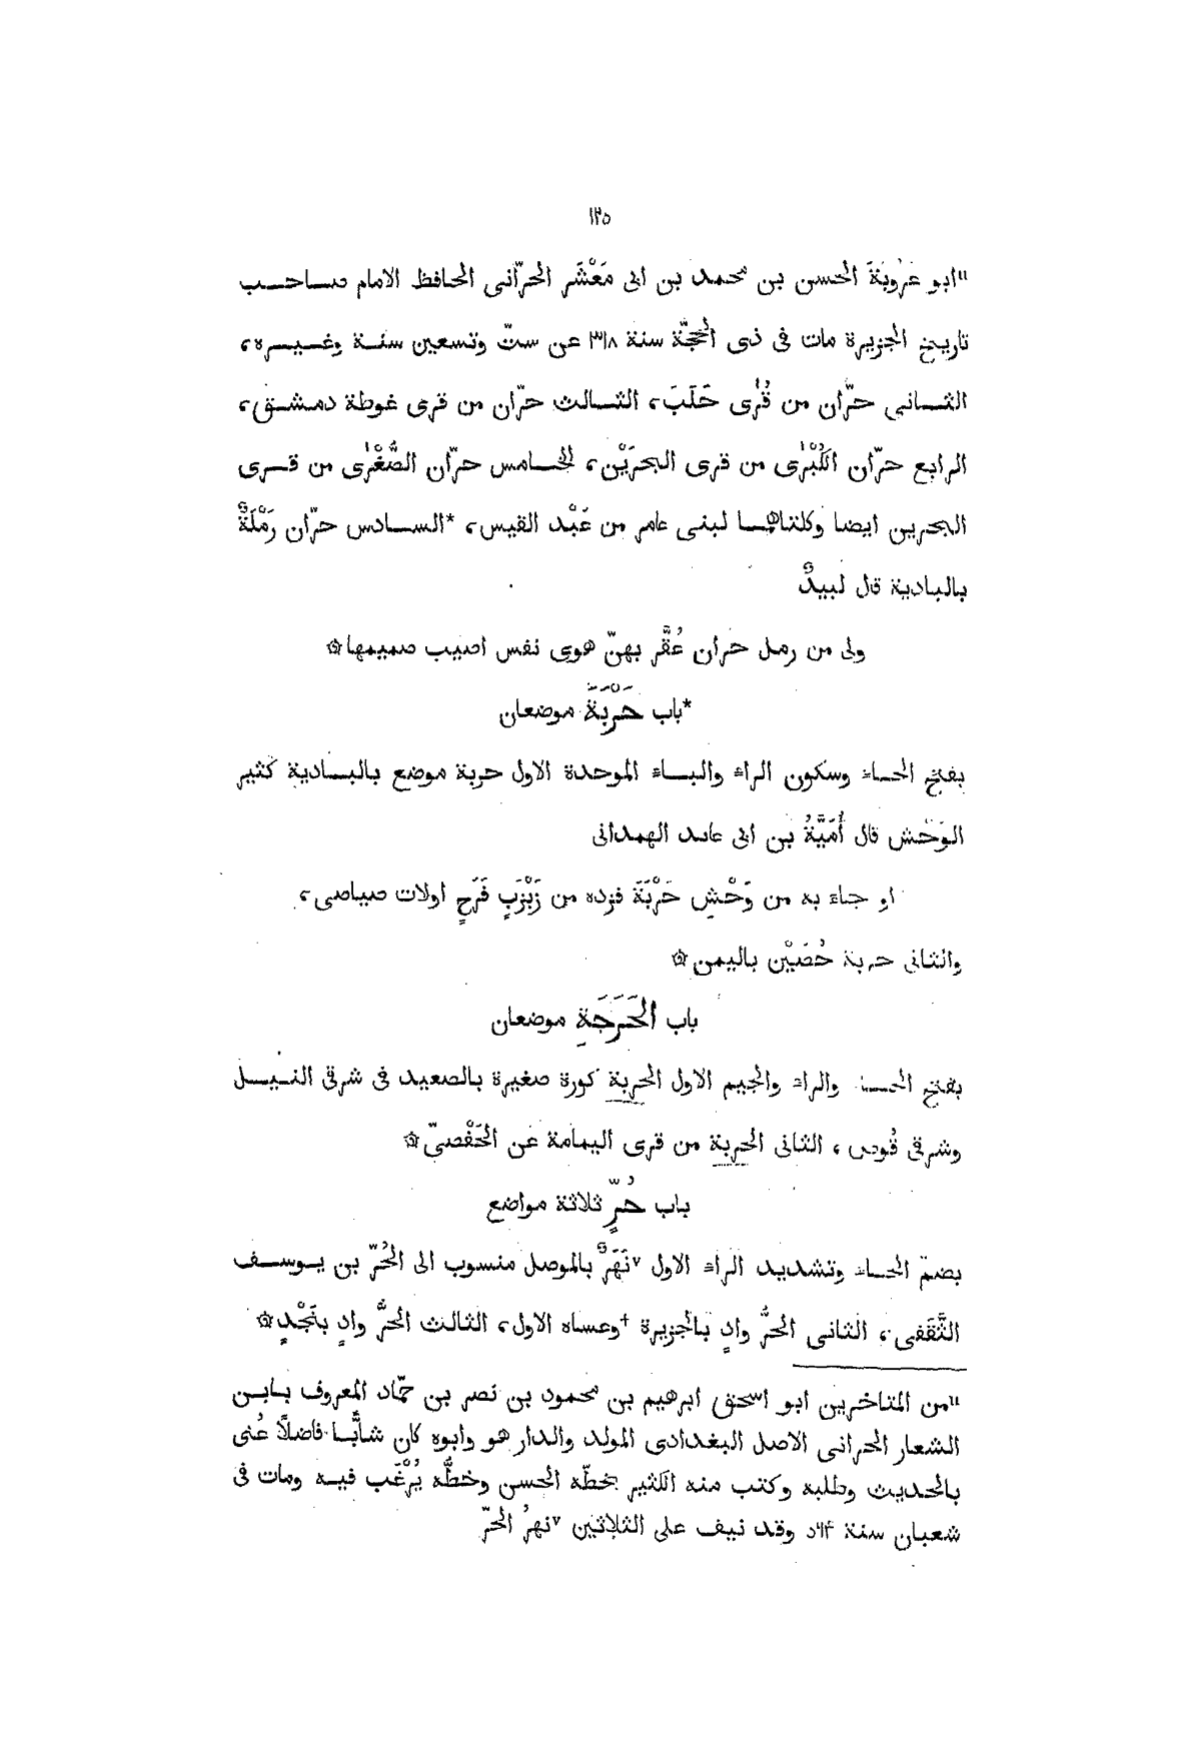 ١٢٥
"ابو عَرُوبَةَ الحسن بن محمد بن ابى مَعْشَر الحرّانى الحافظ الامام صاحب
تاريخ الجزيرة مات فى ذى الحجّة سنة ٣١٨ عن ستّ وتسعين سنة وغيره،
الثانى حرّان من قُرٰى حَلَبَ، الثالث حرّان من قرى غوطة دمشق،
الرابع حرّان الكُبْرٰى من قرى البحرَيْن، الخامس حرّان الصُّغْرٰى من قرى
البحرين ايضا وكلتاهما لبنى عامر من عَبْد القيس، *السادس حرّان رَمْلَةٌ
بالبادية قال لبيدٌ
ولى من رمل حران عُقَّر بهنّ هوى نفس اصيب صميمها۞
*باب حَرْبَةَ موضعان
بفتح الحاء وسكون الراء والباء الموحدة الاول حربة موضع بالبادية كثير
الوَحْش قال أُمَيَّةُ بن ابى عايد الهمدانى
او جاء به من وَحْشِ حَرْبَةَ فزده من رَبْرَبٍ فَرَحٍ اولات صياصى،
والثانى حربة حُصَيْن باليمن۞
باب الحَرَجَةِ موضعان
بفتح الحاء والراء والجيم الاول الحربة كورة صغيرة بالصعيد فى شرقى النيل
وشرقى قُوص ، الثانى الحربة من قرى اليمامة عن الحَفْصىّ۞
باب حُرٍّ ثلاثة مواضع
بضمّ الحاء وتشديد الراء الاول ٧نَهَرٌ بالموصل منسوب الى الحُرّ بن يوسف
الثَّقَفى، الثانى الحرُّ وادٍ بالجزيرة †وعساه الاول، الثالث الحرُّ وادٍ بنَجْدٍ۞
"من المتاخرين ابو اسحق ابرهيم بن محمود بن نصر بن حمّاد المعروف بابن
الشعار الحرانى الاصل البغدادى المولد والدار هو وابوه كان شابًّا فاضلًا عُنى
بالحديث وطلبه وكتب منه الكثير بخطّه الحسن وخطُّه يُرْغَب فيه ومات فى
شعبان سنة وقد نيف على الثلاثين ٧نهرُ الحرّ